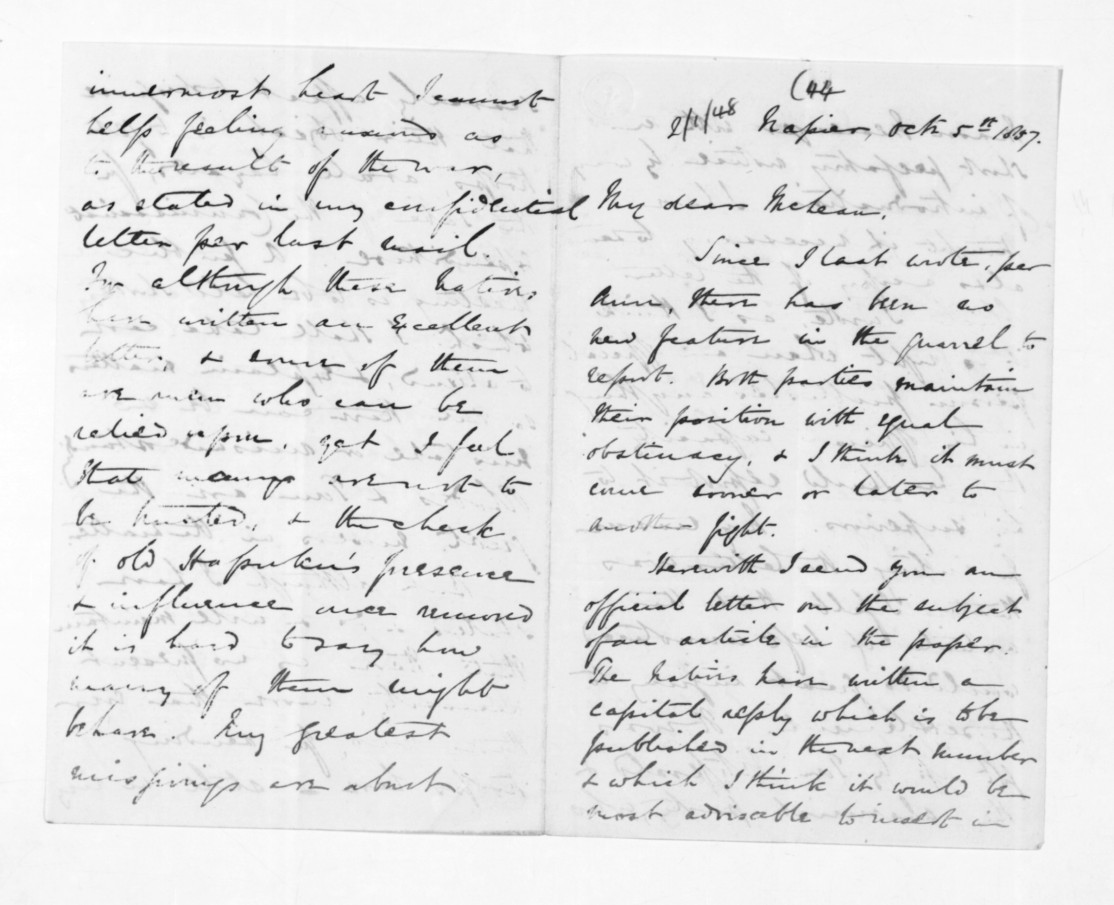 innermost heart I cannot
help feeling as
to the result of the war,
as stated in my confidential
letter per last mail.
For although these Natives
have written an excellent
letter, & some of them
are men who can be
relied upon, yet I feel
that many are not to
be trusted, & the check
of old Hapuku's presence
& influence once removed
it is hard to say how
many of them might
behave. My greatest
misgivings are about
(44
2/1/48 Napier, Octr 5th 1857.
My dear McLean,
Since I last wrote, per
Ann, there has been no
new feature in the quarrel to
report. Both parties maintain
their position with equal
obstinacy, & I think it must
come sooner or later to
another fight.
Herewith I send you an
official letter on the subject
of an article in the paper.
The Natives have written a
capital reply which is to be
published in the next number
& which I think it would be
most advisable to insert in